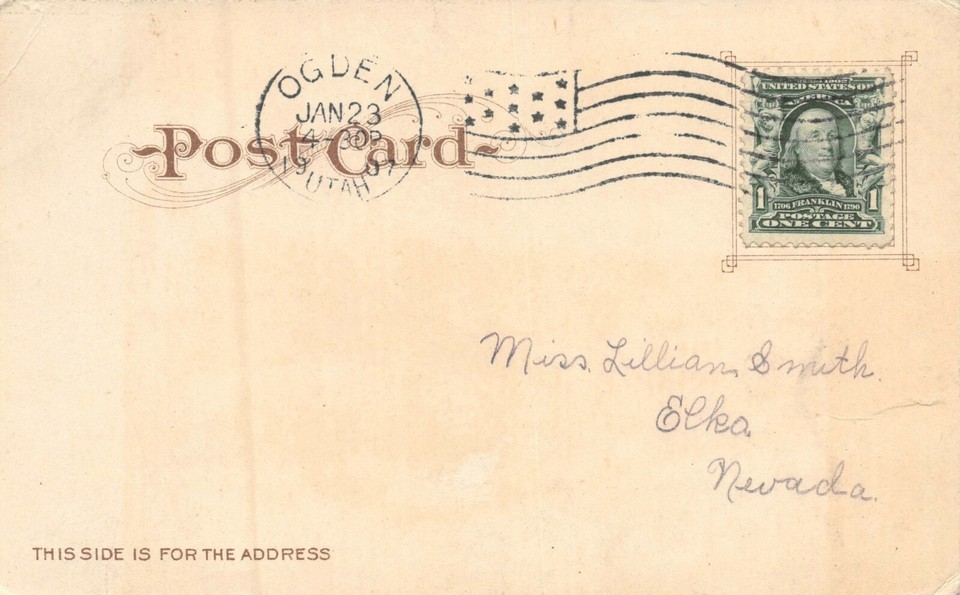 OGDEN
JAN 23
4-30P
1907
UTAH
Post Card
UNITED STATES OF
AMERICA
1 1
1706 FRANKLIN 1790
POSTAGE
ONE CENT
Miss. Lillian Smith.
Elka
Nevada.
THIS SIDE IS FOR THE ADDRESS